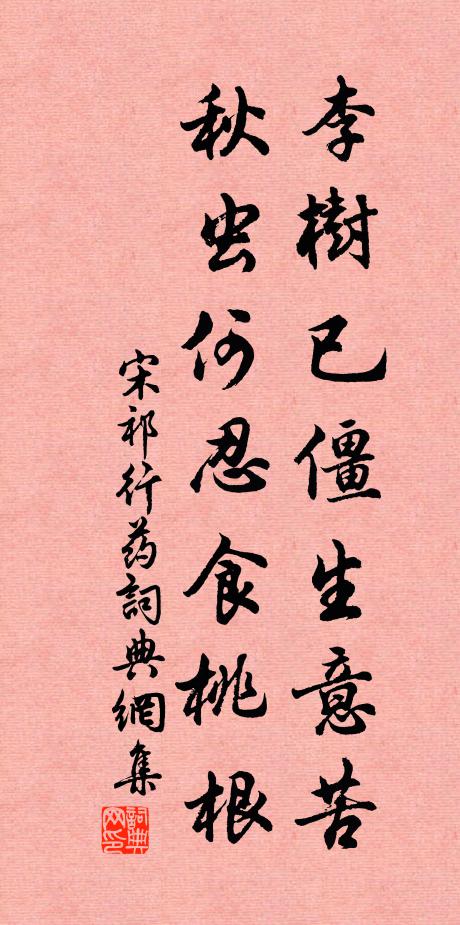 李樹已僵生意苦
秋虫何忍食桃根
宋祁行药詞典網集
詞典网印